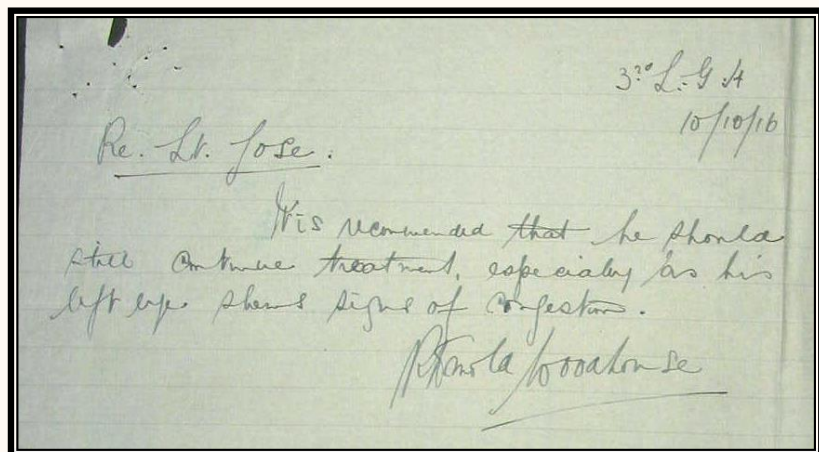 3rd L.G.H
10/10/16
Re. Lt. Jose.
It is recommended that he should
still continue treatment, especially as his
left apex shows signs of congestion.
Woodhouse